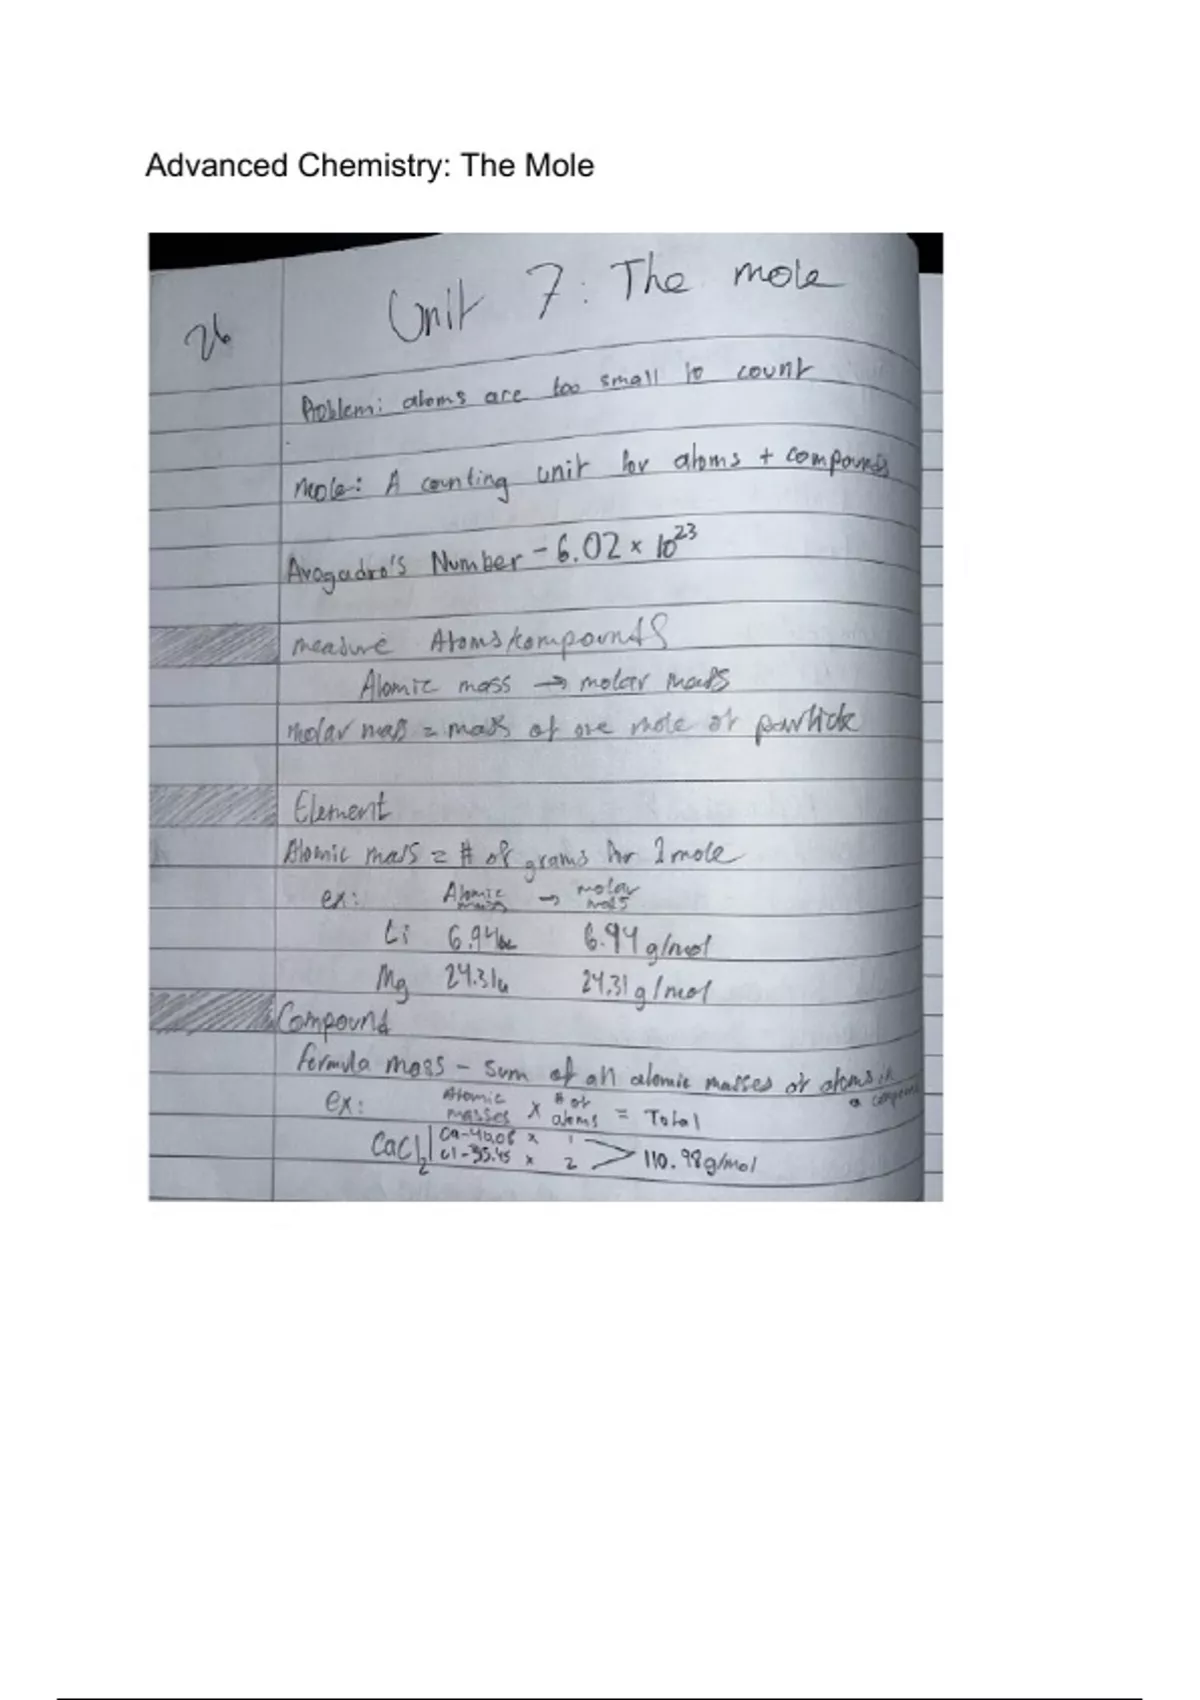 Advanced Chemistry: The Mole
26
Unit 7: The mole
Problem: atoms are too small to count
Mole: A counting unit for atoms + compounds
Avogadro's Number - 6.02 × 10²³
measure Atoms/compounds
Atomic mass → molar mass
Molar mass = mass of one mole of particle
Element
Atomic mass = # of grams for 1 mole
ex: Atomic mass → molar mass
Li 6.94u 6.94 g/mol
Mg 24.31u 24.31 g/mol
Compound
formula mass - sum of all atomic masses of atoms in a compound
ex: Atomic masses × # of atoms = Total
CaCl₂ | Ca-40.08 × 1 > 110.98 g/mol
Cl-35.45 × 2